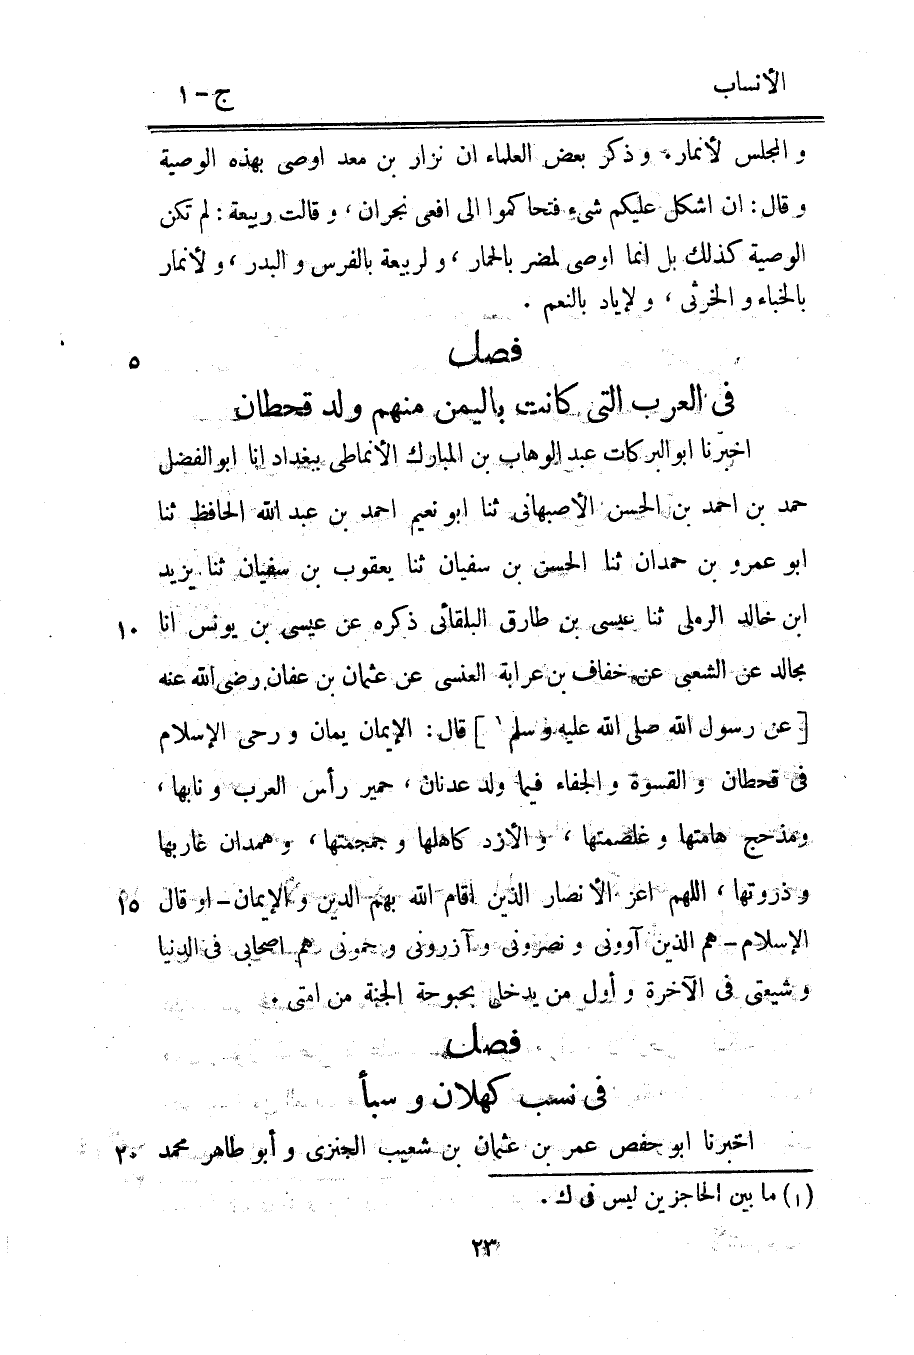 الأنساب
ج - ١
و المجلس لأنمار. و ذكر بعض العلماء ان نزار بن معد اوصى بهذه الوصية
و قال: ان اشكل عليكم شيء فتحاكموا الى افعى نجران، و قالت ربيعة: لم تكن
الوصية كذلك بل انما اوصى لمضر بالحمار، و لربيعة بالفرس و البدر، و لأنمار
بالخباء و الخرثى، و لإياد بالنعم .
فصل
٥
فى العرب التى كانت باليمن منهم ولد قحطان
اخبرنا ابو البركات عبد الوهاب بن المبارك الأنماطى ببغداد انا ابو الفضل
حمد بن احمد بن الحسن الأصبهانى ثنا ابو نعيم احمد بن عبد الله الحافظ ثنا
ابو عمرو بن حمدان ثنا الحسن بن سفيان ثنا يعقوب بن سفيان ثنا يزيد
ابن خالد الرملى ثنا عيسى بن طارق البلقائى ذكره عن عيسى بن يونس انا ١٠
مجالد عن الشعبى عن خفاف بن عرابة العنسى عن عثمان بن عفان رضى الله عنه
[ عن رسول الله صلى الله عليه و سلم ١ ] قال: الإيمان يمان و رحى الإسلام
فى قحطان و القسوة و الجفاء فيما ولد عدنان، حمير رأس العرب و نابها،
ومذحج هامتها و غلصمتها، و الأزد كاهلها و جمجمتها، و همدان غاربها
و ذروتها، اللهم اعز الأنصار الذين اقام الله بهم الدين و الإيمان - او قال ١٥
الإسلام - هم الذين آوونى و نصرونى و آزرونى و حمونى هم اصحابى فى الدنيا
و شيعتى فى الآخرة و أول من يدخل بحبوحة الجنة من امتى .
فصل
فى نسب كهلان و سبأ
اخبرنا ابو حفص عمر بن عثمان بن شعيب الجنزى و أبو طاهر محمد ٢٠
(١) ما بين الحاجزين ليس فى ك .
٢٣